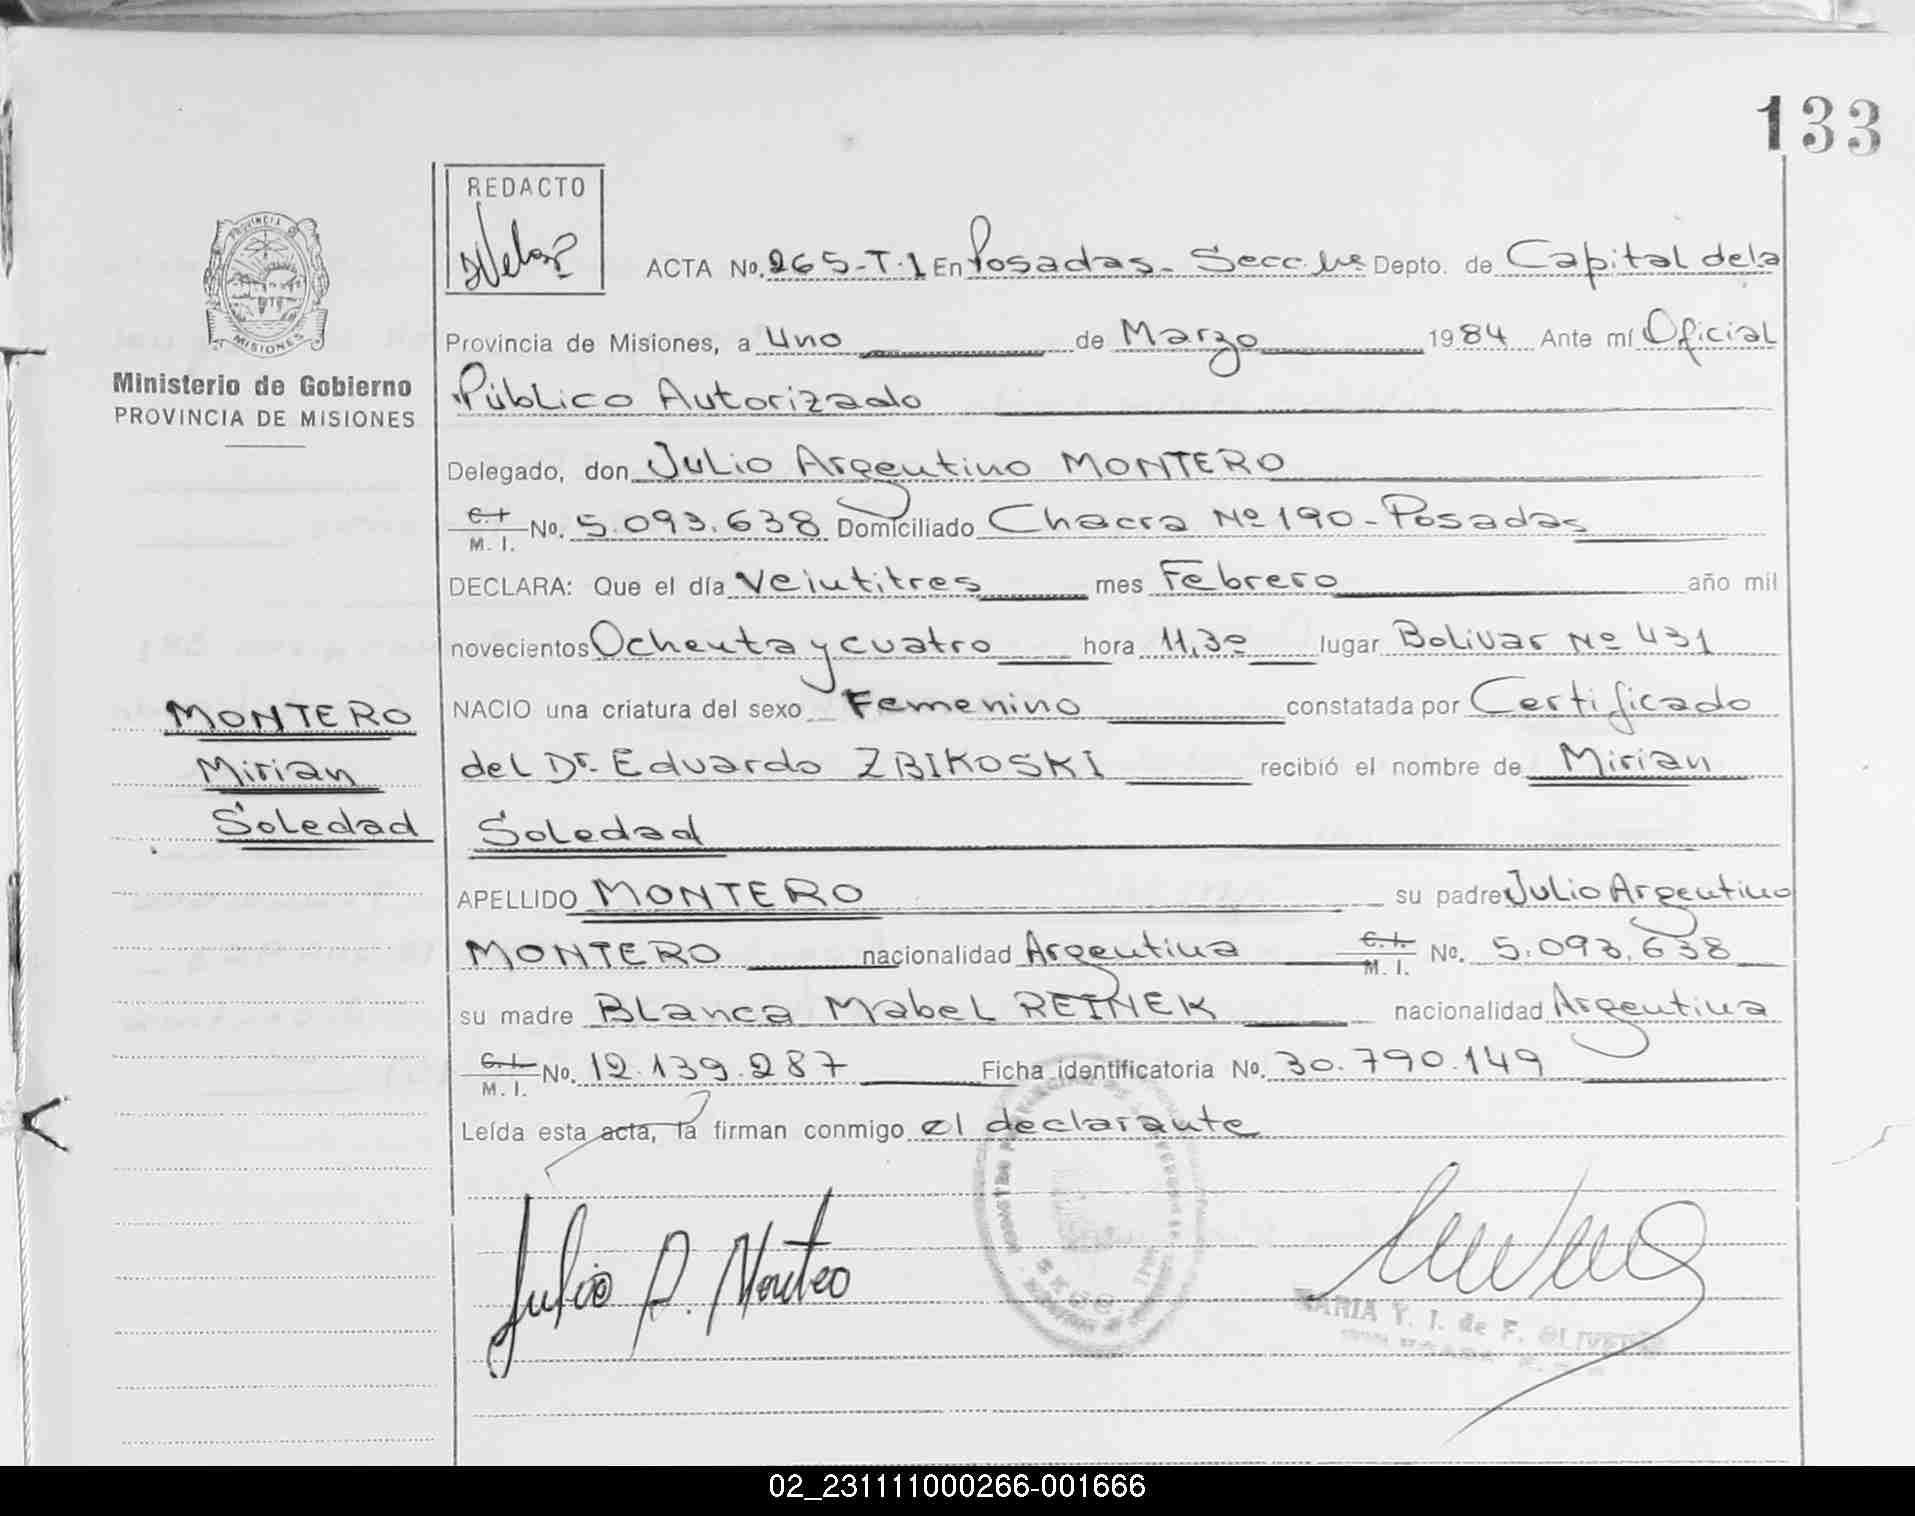 133
REDACTO
PROVINCIA
MISIONES
ACTA No. 265-T.1 En Posadas- Secc. Depto. de Capital de la
Provincia de Misiones, a Uno de Marzo 1984 Ante mí Oficial
Ministerio de Gobierno
PROVINCIA DE MISIONES
Público Autorizado
Delegado, don Julio Argentino MONTERO
C.I. M. I. No. 5.093.638 Domiciliado Chacra Nº 190 - Posadas
DECLARA: Que el día Veintitres mes Febrero año mil
novecientos Ochenta y cuatro hora 11,30 lugar Bolivar Nº 431
MONTERO
Mirian
Soledad
NACIO una criatura del sexo Femenino constatada por Certificado
del Dr. Eduardo ZBIKOSKI recibió el nombre de Mirian
Soledad
APELLIDO MONTERO su padre Julio Argentino
MONTERO nacionalidad Argentina C.I. M. I. No. 5.093.638
su madre Blanca Mabel REINEK nacionalidad Argentina
C.I. M. I. No. 12.139.287 Ficha identificatoria No. 30.790.149
Leída esta acta, la firman conmigo el declarante
Julio A. Montero
MARIA Y. I. de F. OLIVERA
02_231111000266-001666